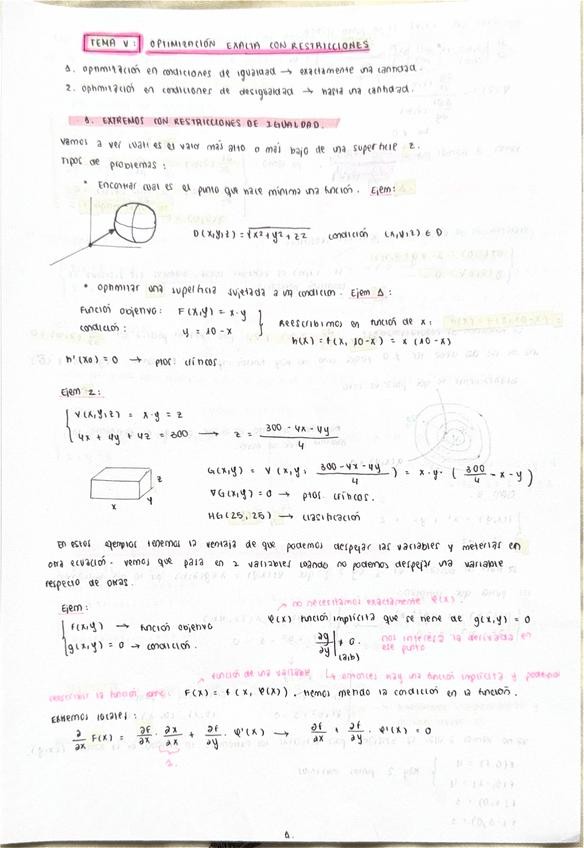 TEMA V: OPTIMIZACIÓN EXACTA CON RESTRICCIONES
1. optimización en condiciones de igualdad → exactamente una cantidad.
2. optimización en condiciones de desigualdad → hasta una cantidad.
1. EXTREMOS CON RESTRICCIONES DE IGUALDAD.
Vamos a ver cuál es el valor más alto o más bajo de una superficie z.
Tipos de problemas:
* Encontrar cual es el punto que hace mínima una función. Ejem:
D(x,y,z) = √x²+y²+z² condición (x,y,z) ∈ D
* optimizar una superficie sujetada a una condición. Ejem 1:
Función objetivo: F(x,y) = x·y
condición: y = 10-x
Reescribimos en función de x:
h(x) = f(x, 10-x) = x (10-x)
h'(x0) = 0 → ptos. críticos.
Ejem 2:
V(x,y,z) = x·y = z
4x + 4y + 4z = 300 → z = (300 - 4x - 4y)/4
G(x,y) = V (x, y, (300-4x-4y)/4) = x·y·(300/4 - x - y)
∇G(x,y) = 0 → ptos. críticos.
HG(25,25) → clasificación
x
y
z
En estos ejemplos tenemos la ventaja de que podemos despejar las variables y meterlas en
otra ecuación. vemos que pasa en 2 variables cuando no podemos despejar una variable
respecto de otras.
Ejem:
→ no necesitamos exactamente φ(x).
f(x,y) → función objetivo
g(x,y) = 0 → condición.
φ(x) función implícita que se tiene de g(x,y) = 0
∂g/∂y |(a,b) ≠ 0.
nos interesa la derivada en
ese punto
→ función de una variable
↳ entonces hay una función implícita y podemos
reescribir la función como: F(x) = f(x, φ(x)). Hemos metido la condición en la función.
Extremos locales:
∂/∂x F(x) = ∂f/∂x · ∂x/∂x + ∂f/∂y · φ'(x) → ∂f/∂x + ∂f/∂y · φ'(x) = 0
1.
1.